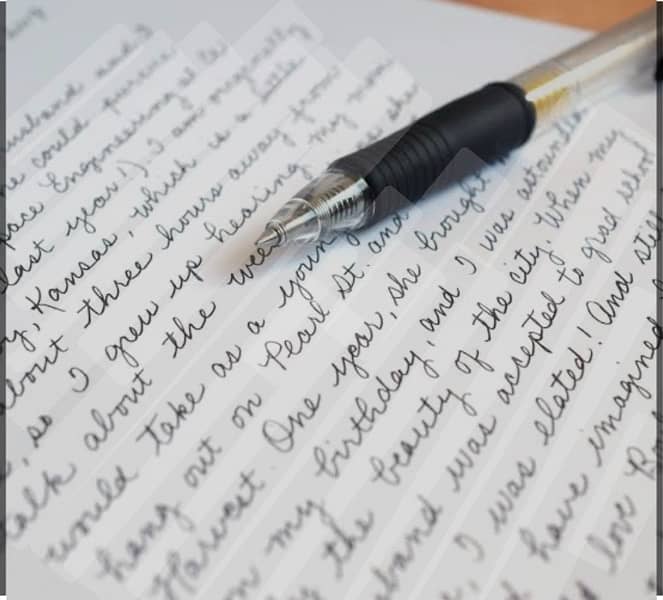 husband and I
he could pursue
space Engineering at
last year!). I am originally
Kansas, which is a little
about three hours away from
so I grew up hearing my mom
talk about the she
would take as a young
hang out on Pearl St. and
Harvest. One year, she brought
my birthday, and I was
the beauty of the city. When my
husband was accepted to grad school
I was elated! And still
have imagined
love